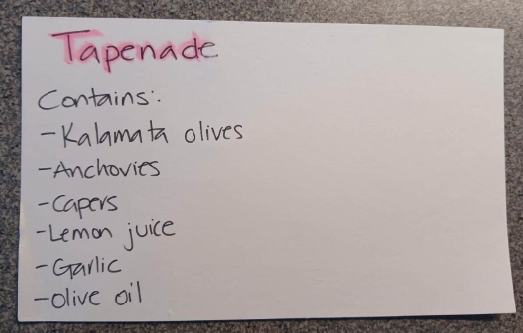 Tapenade
Contains:
-Kalamata olives
-Anchovies
-Capers
-Lemon juice
-Garlic
-Olive oil